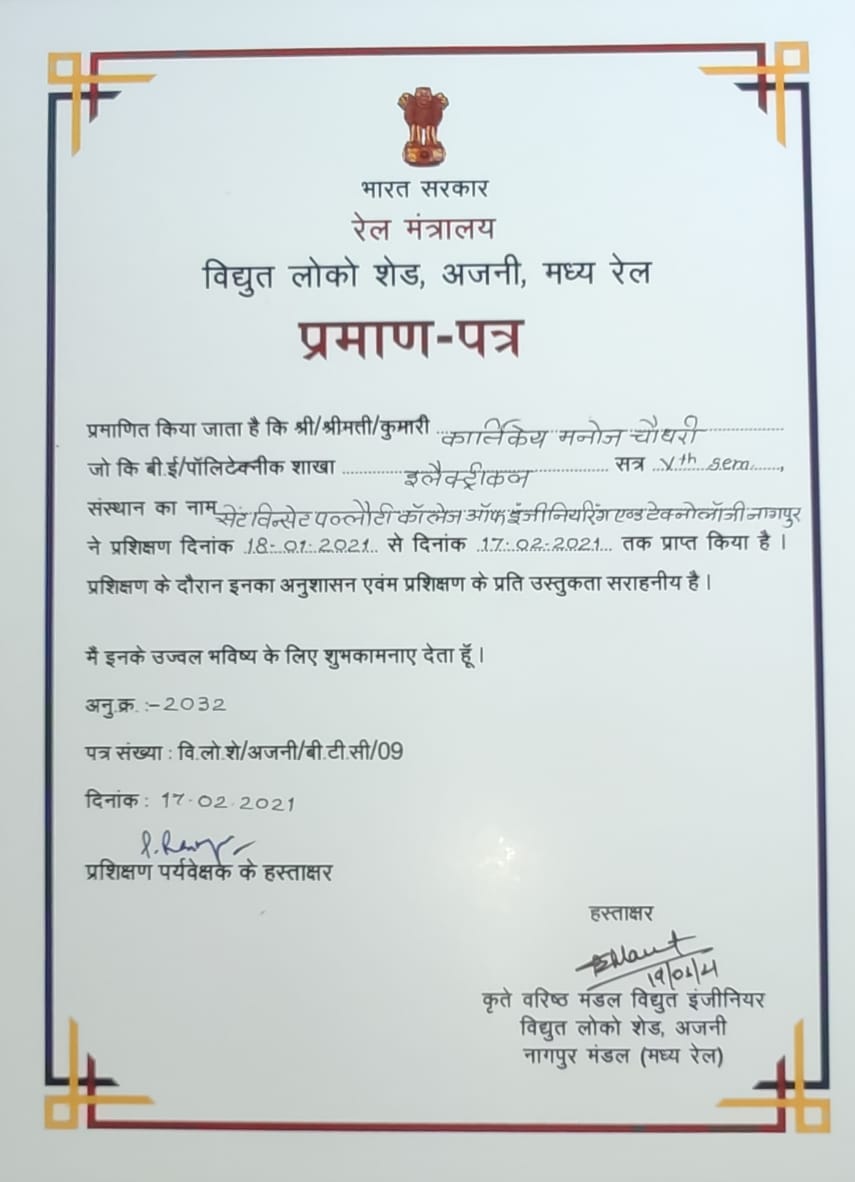 भारत सरकार
रेल मंत्रालय
विद्युत लोको शेड, अजनी, मध्य रेल
प्रमाण-पत्र
प्रमाणित किया जाता है कि श्री/श्रीमती/कुमारी कार्तिकेय मनोज चौधरी
जो कि बी.ई/पॉलिटेक्नीक शाखा इलैक्ट्रीकल सत्र Vth sem.,
संस्थान का नाम सेंट विन्सेट पल्लौटी कॉलेज ऑफ इंजीनियरिंग एण्ड टेक्नोलॉजी नागपुर
ने प्रशिक्षण दिनांक 18-01-2021 से दिनांक 17-02-2021 तक प्राप्त किया है।
प्रशिक्षण के दौरान इनका अनुशासन एवंम प्रशिक्षण के प्रति उस्तुकता सराहनीय है।
मै इनके उज्वल भविष्य के लिए शुभकामनाए देता हूँ।
अनु.क्र. :- 2032
पत्र संख्या : वि.लो.शे/अजनी/बी.टी.सी/09
दिनांक : 17-02-2021
प्रशिक्षण पर्यवेक्षक के हस्ताक्षर
हस्ताक्षर
कृते वरिष्ठ मंडल विद्युत इंजीनियर
विद्युत लोको शेड, अजनी
नागपुर मंडल (मध्य रेल)